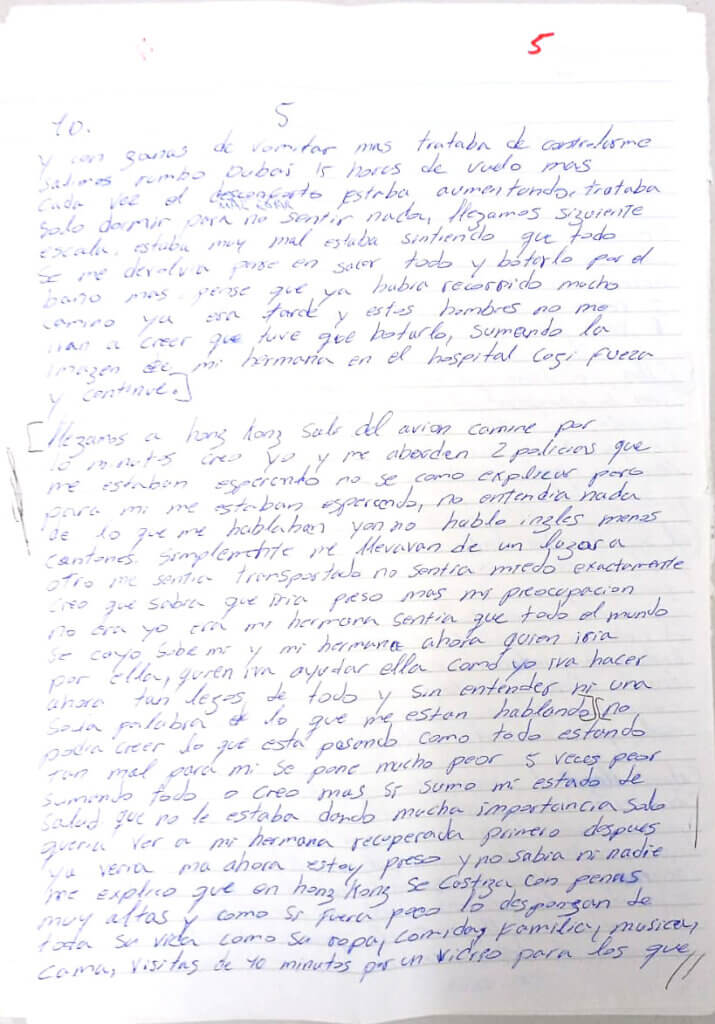 5
5
10.
y con ganas de vomitar mas trataba de controlarme
salimos rumbo Dubai 15 horas de vuelo mas
cada vez el desconforto estaba aumentando, trataba
solo dormir para no sentir nada, llegamos siguiente
escala, estaba muy mal estaba sintiendo que todo
se me devolvia pense en sacar todo y botarlo por el
baño mas pense que ya habia recorrido mucho
camino ya era tarde y estos hombres no me
ivan a creer que tuve que botarlo, sumando la
imagen de mi hermana en el hospital cogi fueza
y continue.]
[llegamos a hong Kong sali del avion camine por
10 minutos creo yo y me aborden 2 policias que
me estaban esperando no se como explicar pero
para mi me estaban esperando, no entendia nada
de lo que me hablaban yo no hablo ingles menos
cantones. Simplemente me llevavan de un lugar a
otro me sentia transportado no sentia miedo exactamente
creo que sabia que iria preso mas mi preocupacion
no era yo era mi hermana sentia que todo el mundo
se cayo sobe mi y mi hermana ahora quien iria
por ella, quien iva ayudar ella como yo iva hacer
ahora tan legos de todo y sin entender ni una
sola palabra de lo que me estan hablando][no
podia creer lo que esta pasando como todo estando
tan mal para mi se pone mucho peor 5 veces peor
sumando todo o creo mas si sumo mi estado de
salud que no le estaba dando mucha importancia solo
queria ver a mi hermana recuperada primero despues
ya veria ma ahora estoy preso y no sabia ni nadie
me explico que en hong Kong se castiga con penas
muy altas y como si fuera poco lo despongan de
toda su vida como su ropa, comida, familia, musica,
cama, visitas de 10 minutos por un vidrio para los que